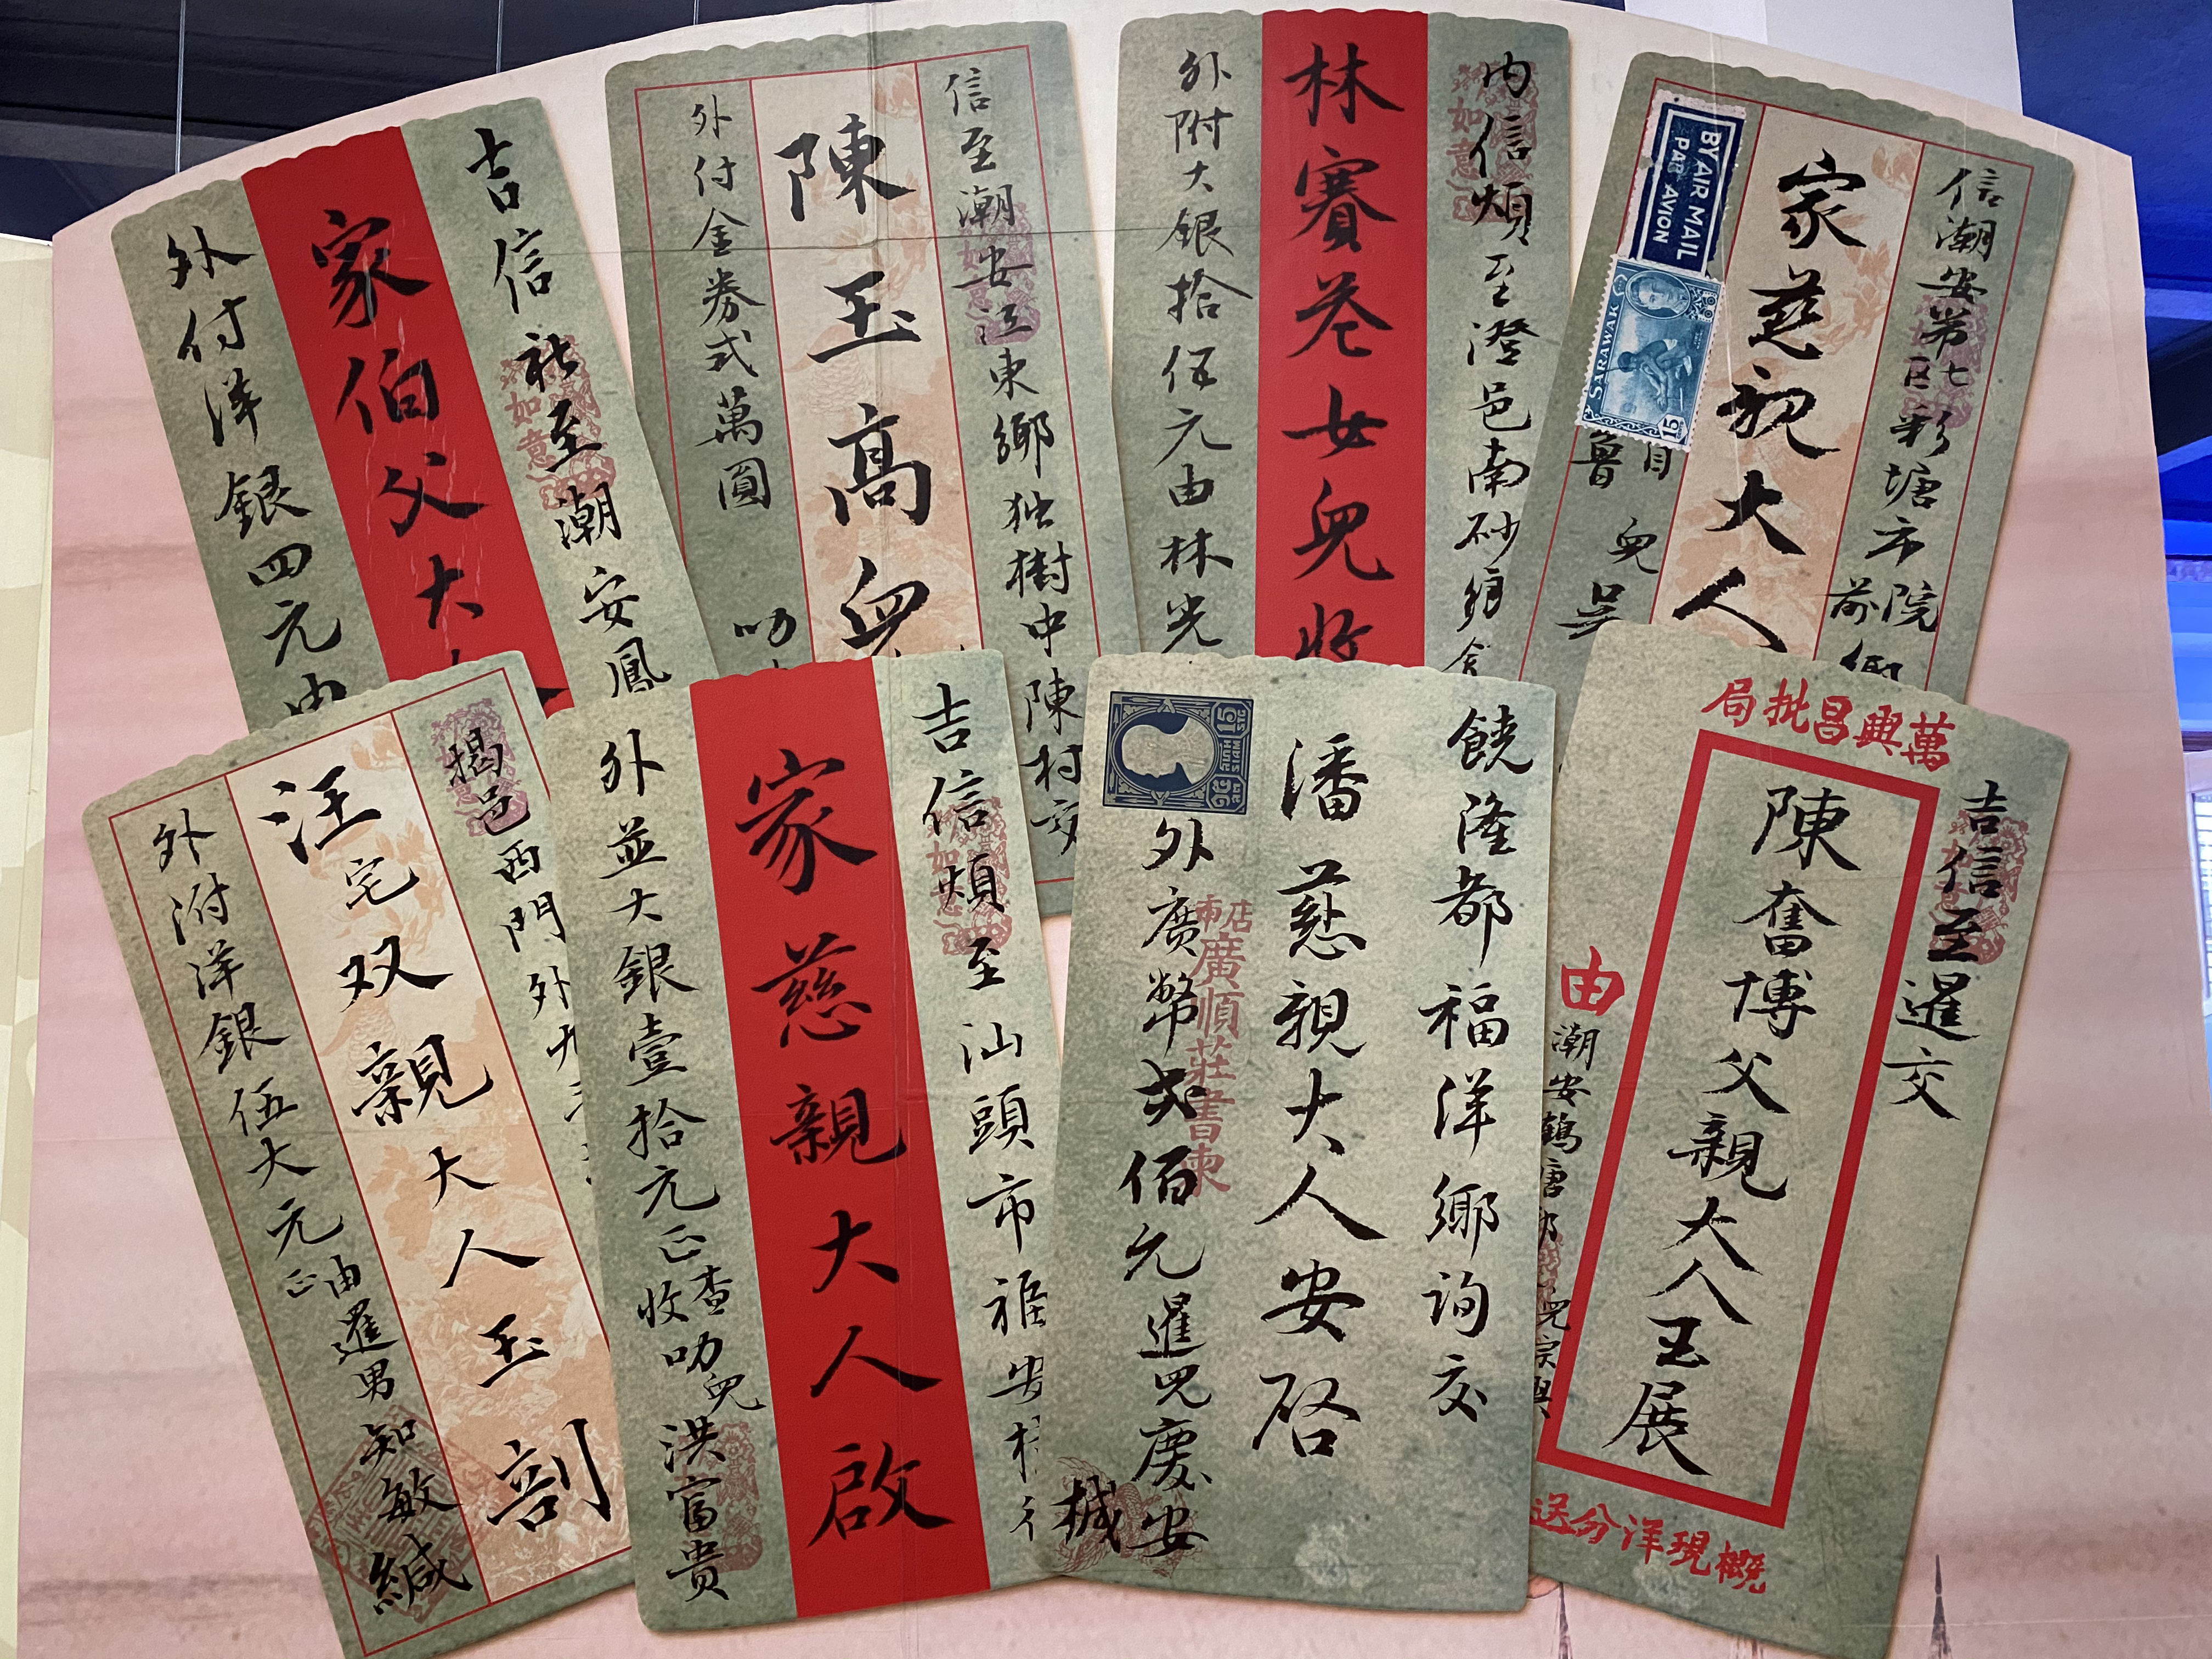 吉信社至潮安鳳
家伯父大人
外付洋銀四元由
信至潮安江東鄉独樹中陳村交
陳玉髙兒
外付金券弍萬圓
叻
内信煩至澄邑南砂鄉
林賽莶女兒收
外附大銀拾伍元由林光
信潮安第七区彩塘市院前鄉
家慈親大人
BY AIR MAIL
PAR AVION
SARAWAK
15c
兒吳
揭邑西門外
汪宅双親大人玉剖
外附洋銀伍大元正由暹男知敏緘
吉信煩至汕頭市
家慈親大人啟
外並大銀壹拾元正查收叻兒洪富貴
饒隆都福洋鄉询交
潘慈親大人安啓
外廣幣弍佰元暹兒慶安械
15
廣順莊書柬
萬興昌批局
吉信至暹交
陳奮博父親大人玉展
由潮安鶴塘
概現洋分送
如意